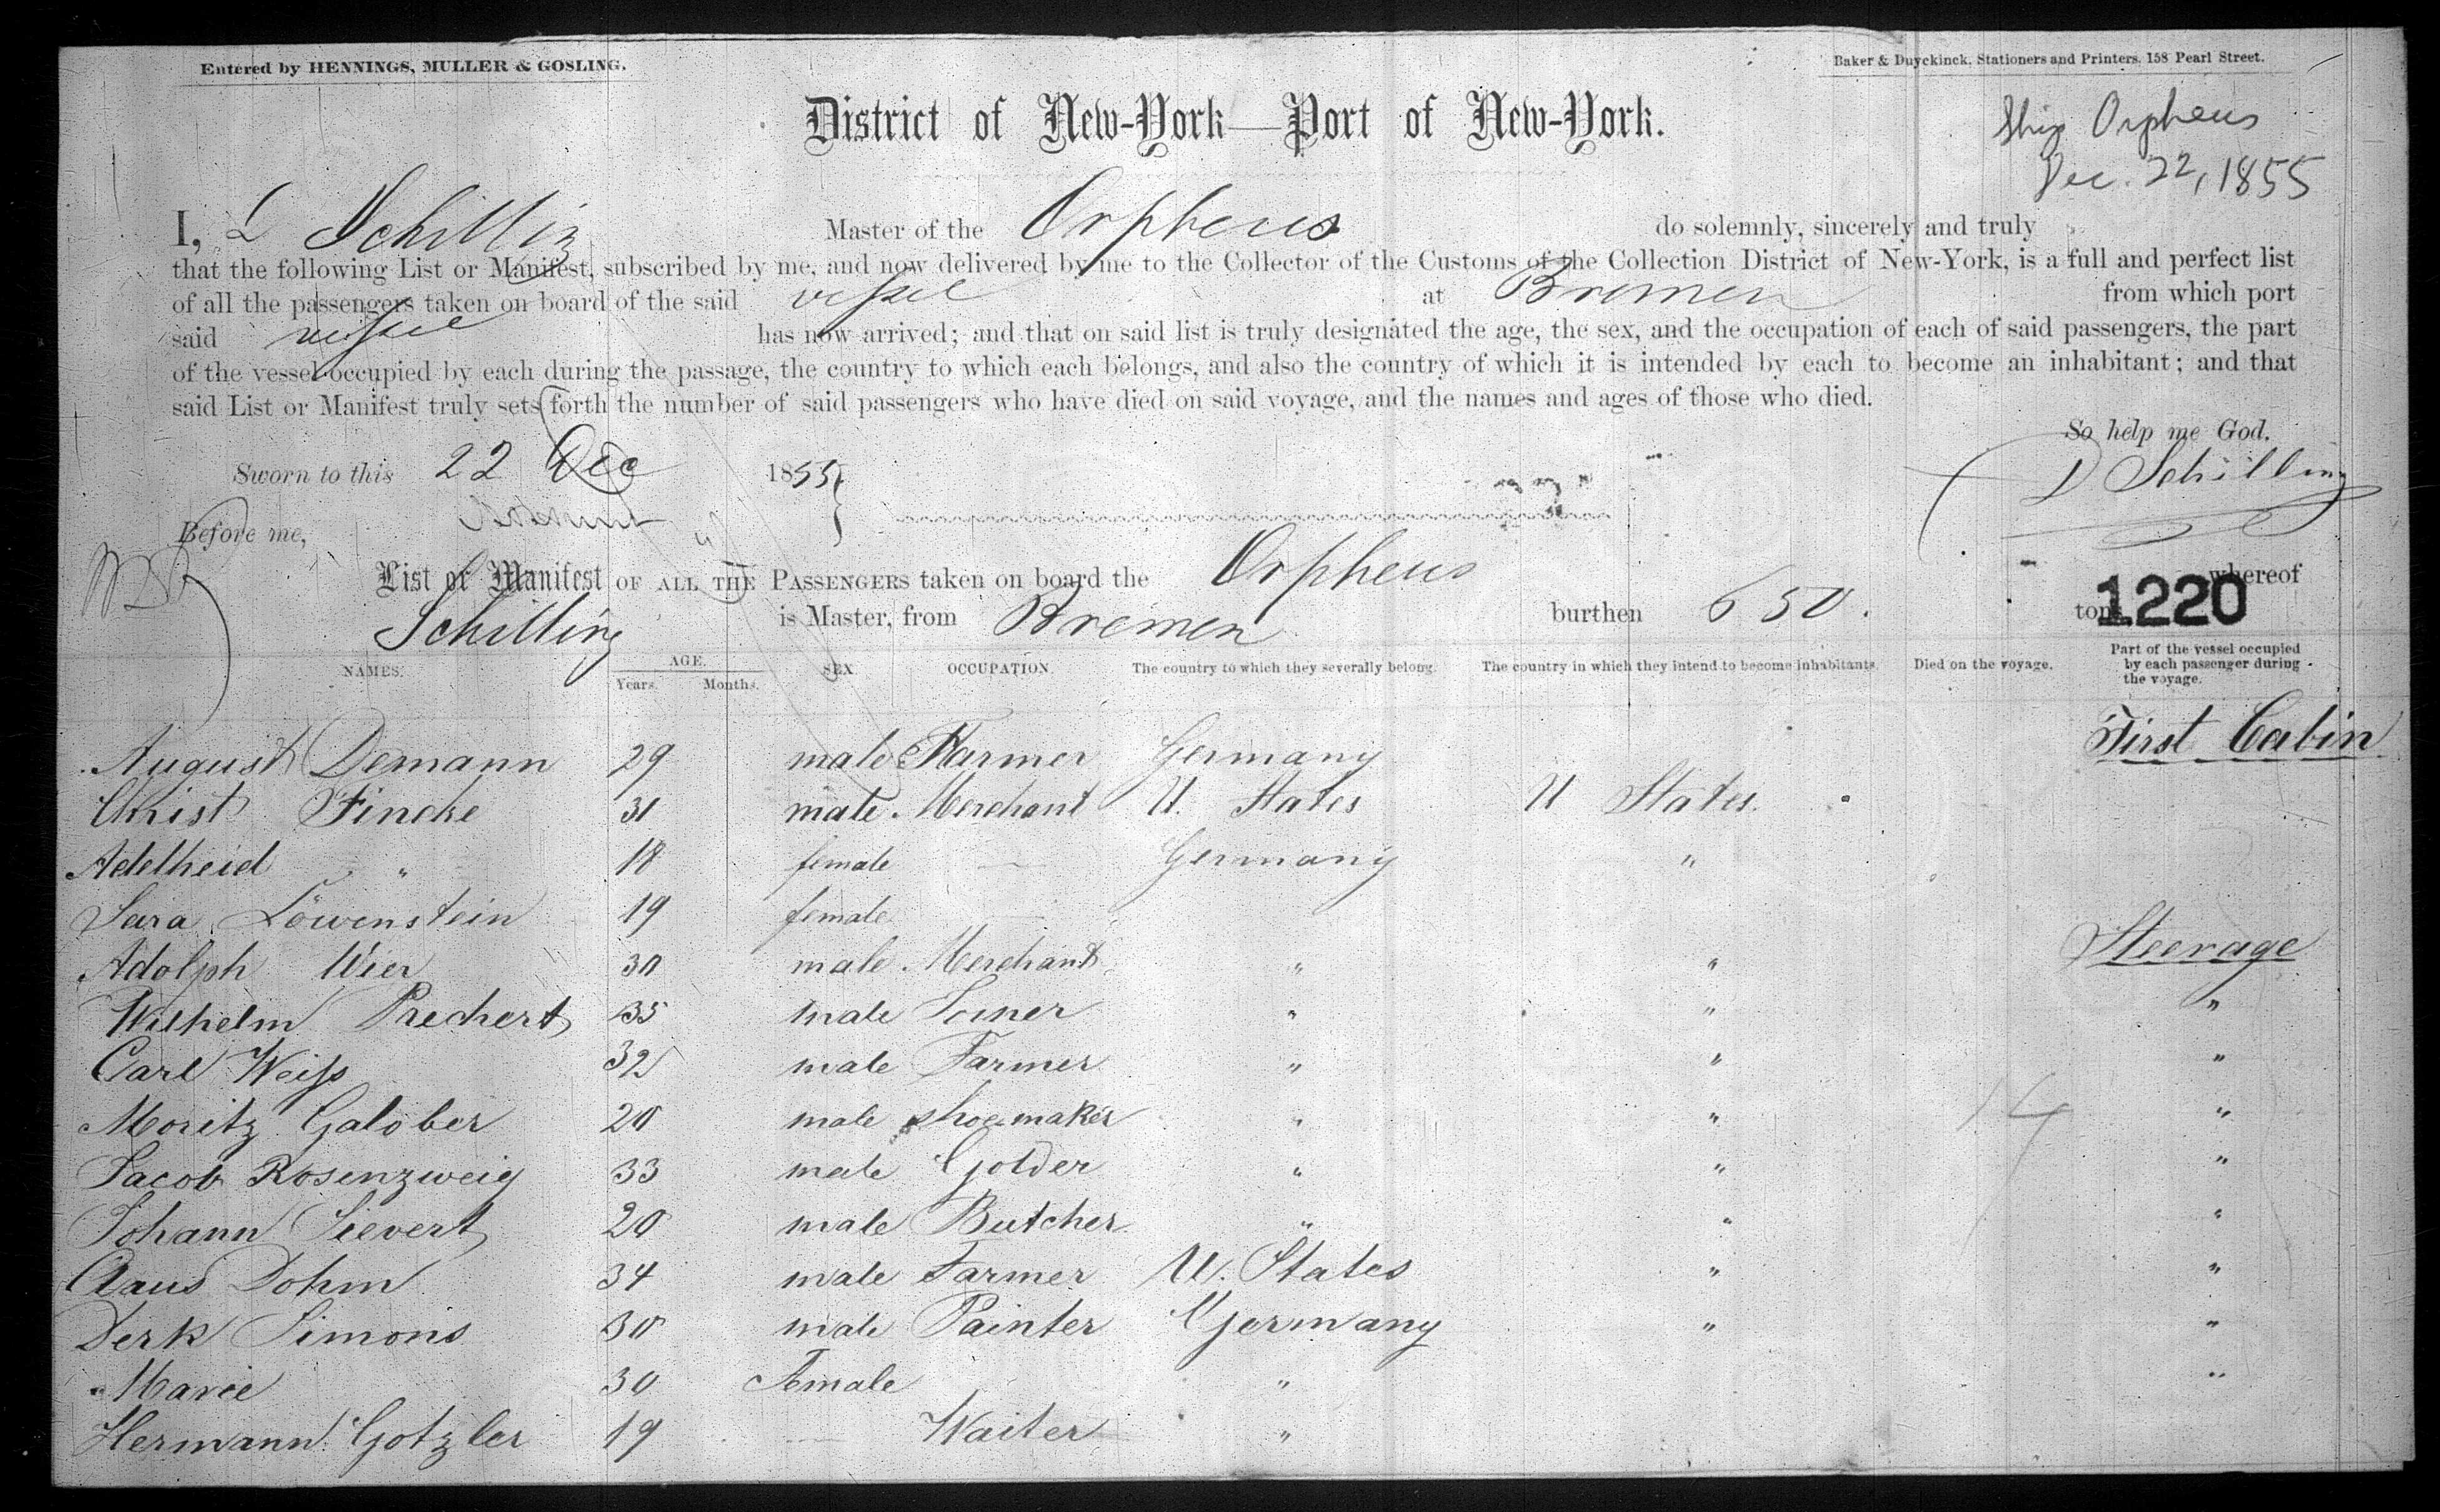 Entered by HENNINGS, MULLER & GOSLING.
Baker & Duyckinck, Stationers and Printers, 158 Pearl Street.
District of New-York—Port of New-York.
Ship Orpheus
Dec. 22, 1855
I, D Schilling Master of the Orpheus do solemnly, sincerely and truly
that the following List or Manifest, subscribed by me, and now delivered by me to the Collector of the Customs of the Collection District of New-York, is a full and perfect list
of all the passengers taken on board of the said vessel at Bremen from which port
said vessel has now arrived; and that on said list is truly designated the age, the sex, and the occupation of each of said passengers, the part
of the vessel occupied by each during the passage, the country to which each belongs, and also the country of which it is intended by each to become an inhabitant; and that
said List or Manifest truly sets forth the number of said passengers who have died on said voyage, and the names and ages of those who died.
So help me God.
Sworn to this 22 Dec 1855
D Schilling
Before me,
List or Manifest OF ALL THE PASSENGERS taken on board the Orpheus whereof
Schilling is Master, from Bremen burthen 650. tons
1220
NAMES. AGE. Years. Months. SEX OCCUPATION. The country to which they severally belong. The country in which they intend to become inhabitants. Died on the voyage. Part of the vessel occupied by each passenger during the voyage.
First Cabin
August Demann 29 male Farmer Germany
Christ Fincke 31 male Merchant U. States U States
Adelheid " 18 female — Germany "
Sara Löwenstein 19 female
Steerage
Adolph Wier 30 male Merchant " "
Wilhelm Prechert 35 male Joiner " " "
Carl Weiss 32 male Farmer " " "
Moritz Galober 20 male Shoemaker " " "
Jacob Rosenzweig 33 male Golder " " "
Johann Sievert 20 male Butcher " " "
Claus Dohm 34 male Farmer U. States " "
Derk Simons 30 male Painter Germany " "
" Marie 30 Female " "
Hermann Gotzler 19 — Waiter "
14